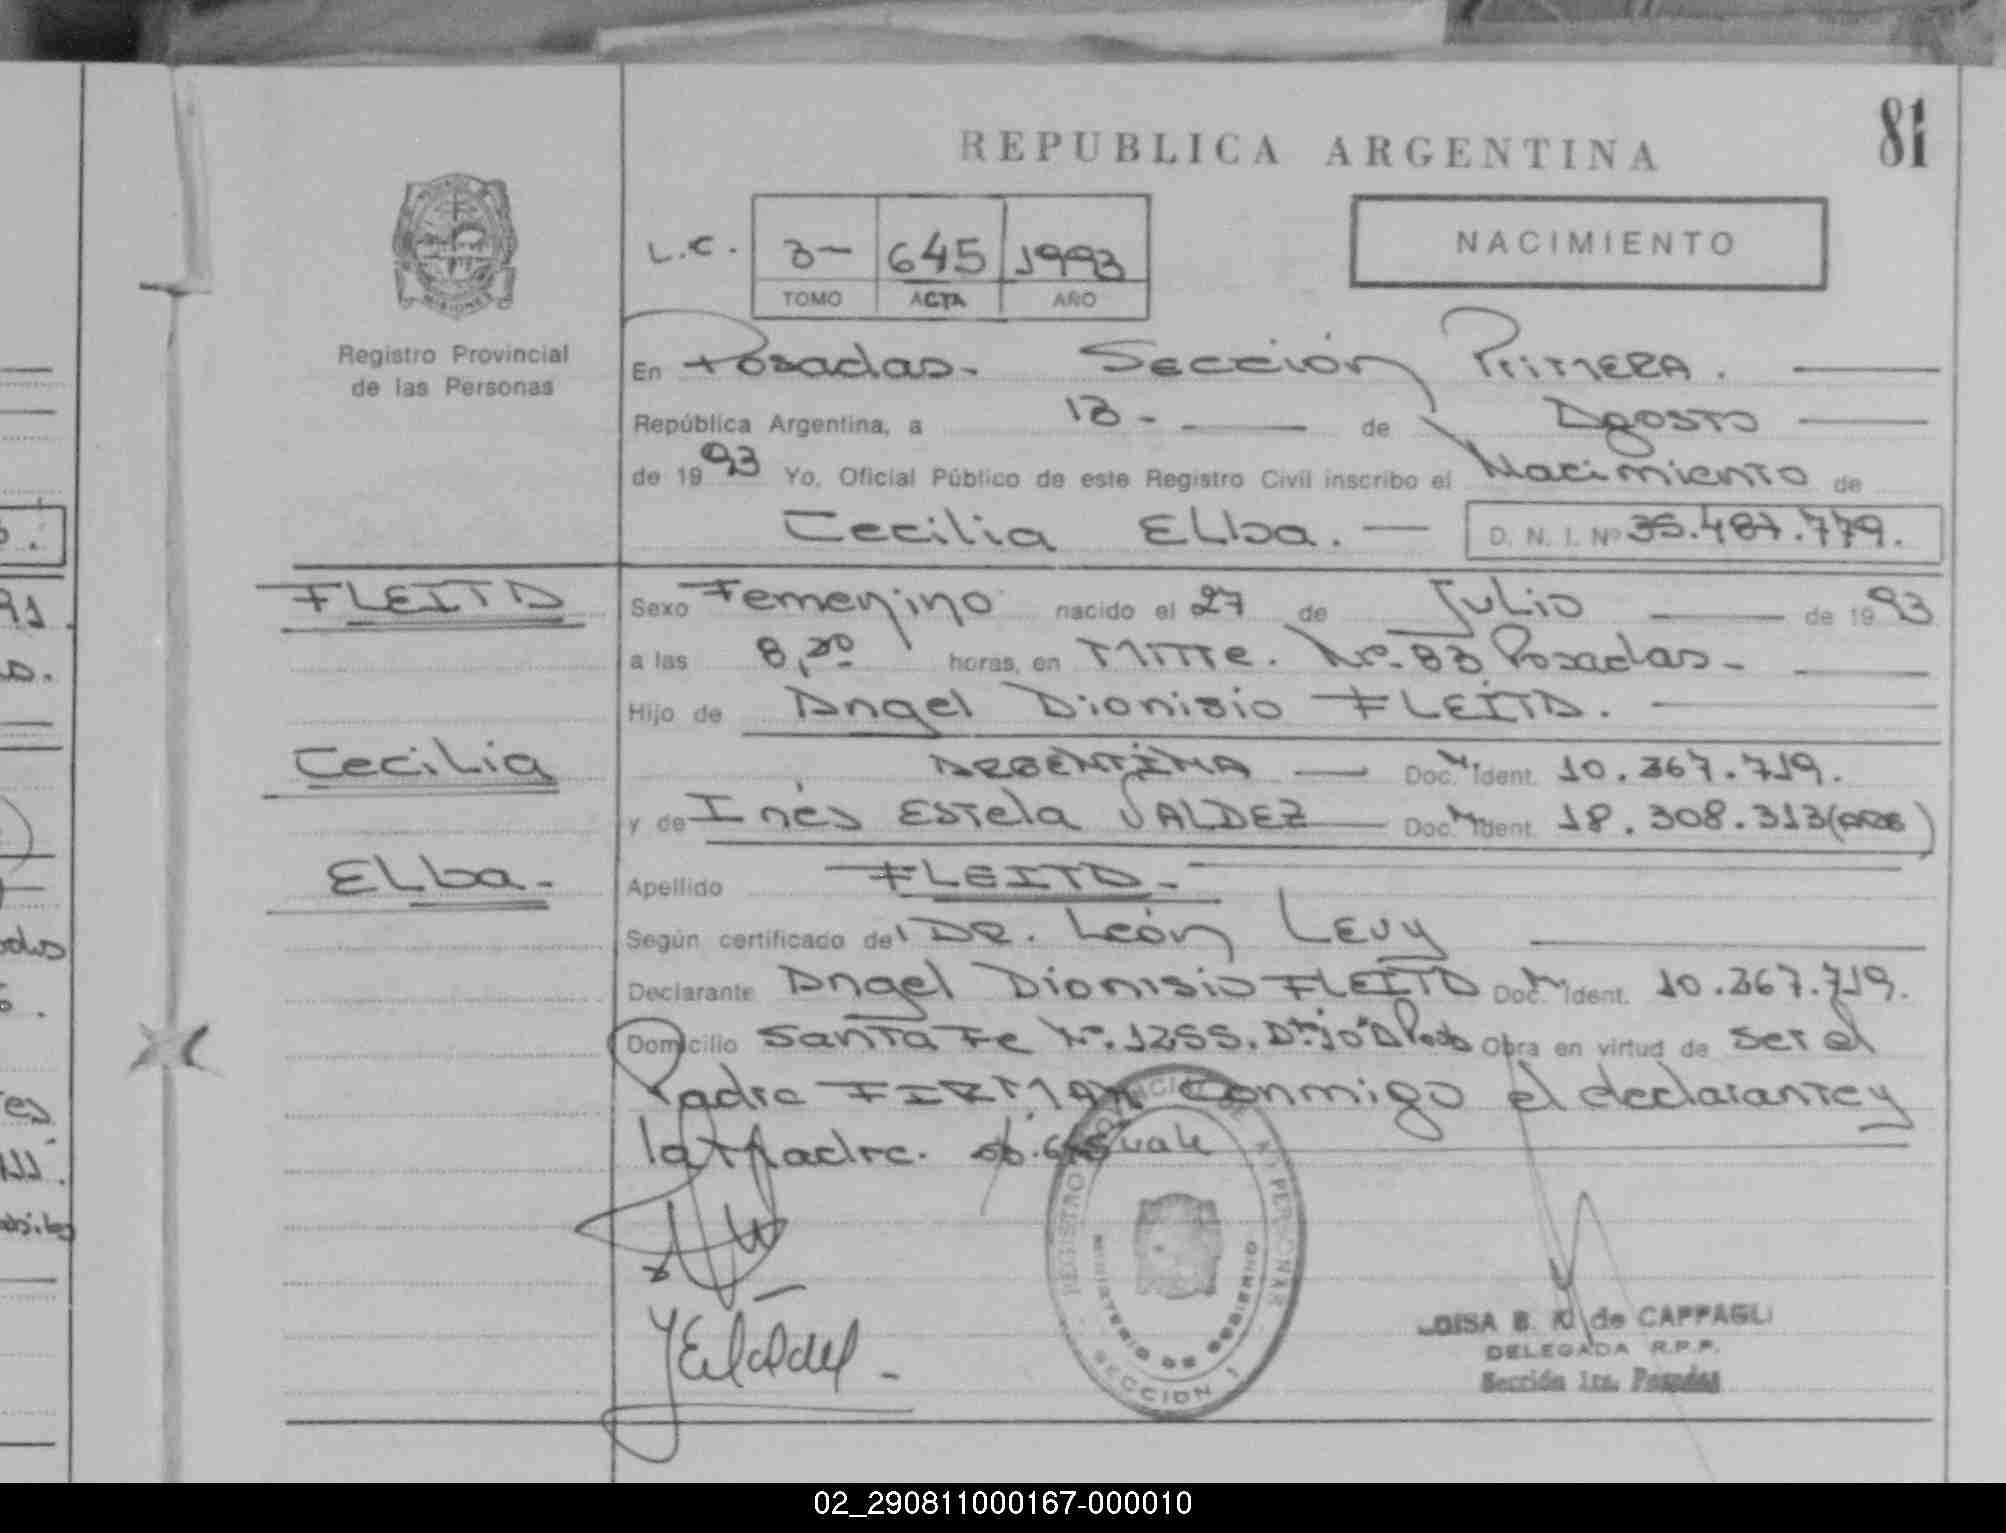 81
REPUBLICA ARGENTINA
NACIMIENTO
L.C. 3- 645 1993
TOMO ACTA AÑO
MISIONES
Registro Provincial
de las Personas
En Posadas. Sección Primera.
República Argentina, a 13- de Agosto
de 1993 Yo, Oficial Público de este Registro Civil inscribo el Nacimiento de
Cecilia Elba. — D. N. I. Nº 35.487.779.
FLEITA
Cecilia
Elba.-
Sexo Femenino nacido el 27 de Julio de 1993
a las 8,30 horas, en Mitre. Nº. 83 Posadas-
Hijo de Angel Dionisio FLEITA.
ARGENTINA — Doc. Ident. 10.367.719.
y de Inés Estela VALDEZ — Doc. Ident. 18.308.313 (ARG)
Apellido FLEITA.-
Según certificado del DR. León Levy
Declarante Angel Dionisio FLEITA Doc. Ident. 10.367.719.
Domicilio Santa Fe Nº. 1255. Obra en virtud de ser el
Padre FIRMAN Conmigo el declarante y
la Madre. vale
REGISTRO PROVINCIAL DE PERSONAS
MINISTERIO DE GOBIERNO
SECCION 1
B. K. de CAPPAGLI
DELEGADA R.P.P.
Sección 1ra. Posadas
02_290811000167-000010